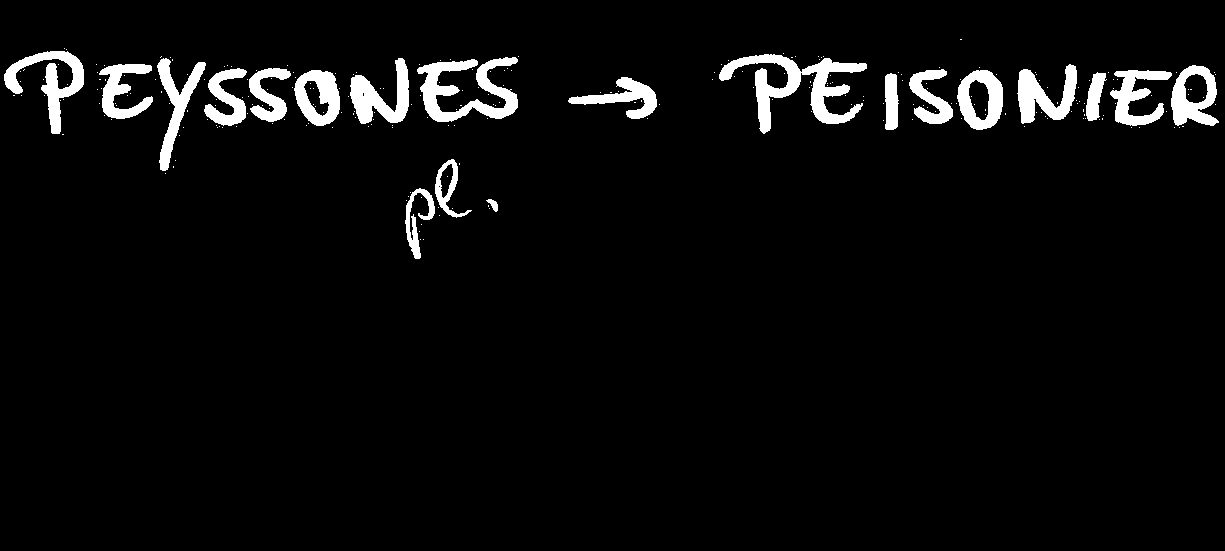 PEYSSONES → PEISONIER
pl.